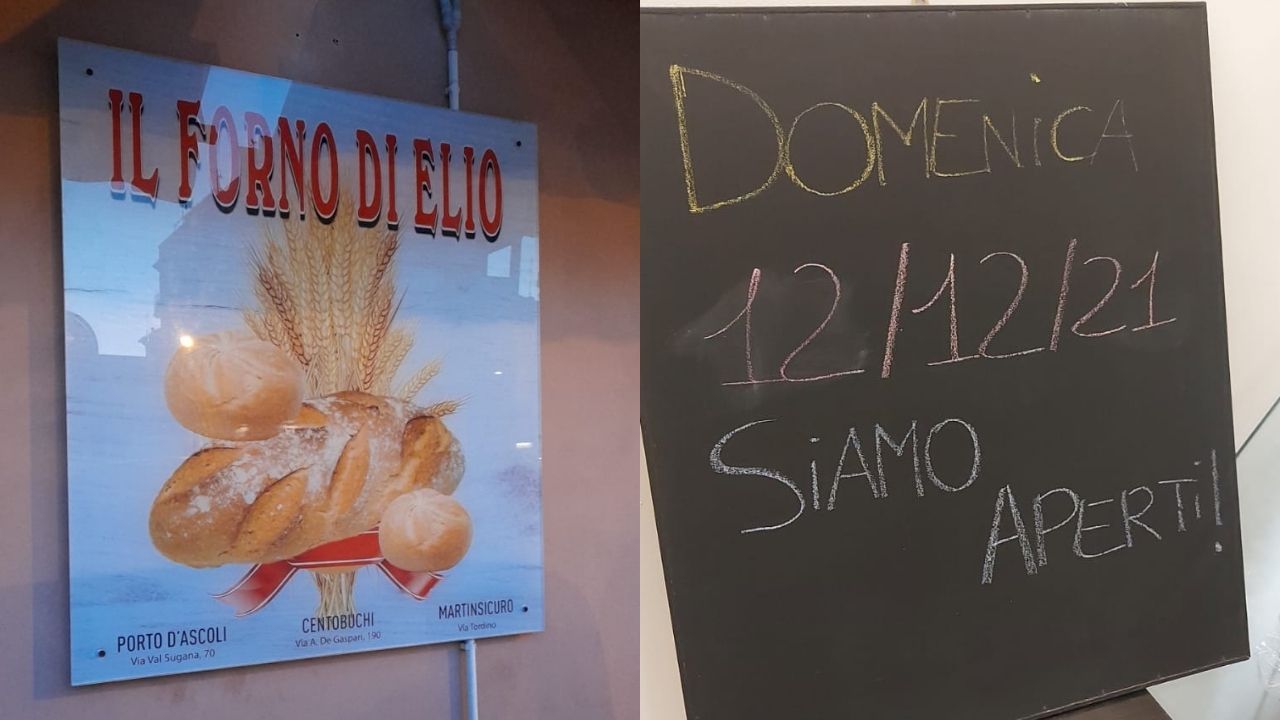 IL FORNO DI ELIO
PORTO D'ASCOLI
Via Val Sugana, 70
CENTOBUCHI
Via A. De Gaspari, 190
MARTINSICURO
Via Tordino
DOMENiCA
12/12/21
SiAMO
APERTi!